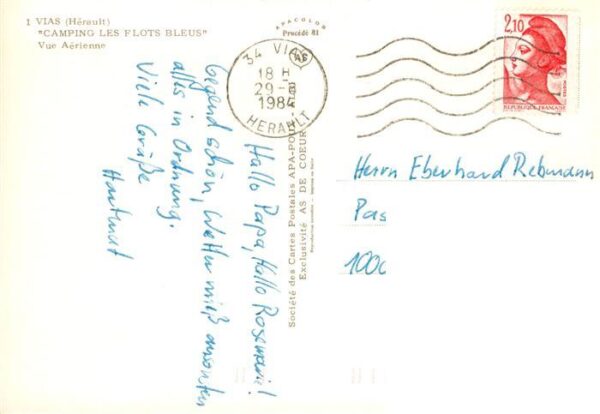 1 VIAS (Hérault)
"CAMPING LES FLOTS BLEUS"
Vue Aérienne
APACOLOR
Procédé 81
34 VIAS
18 H
29-
1984
HERAULT
2,10
REPUBLIQUE FRANÇAISE
Hallo Papa, Hallo Rosemarie!
Gegend schön, Wetter mieß ansonsten
alles in Ordnung.
Viele Grüße
Hartmut
Société des Cartes Postales APA-POUX
Exclusivité AS DE COEUR
Herrn Eberhard Rebmann
Pas
100